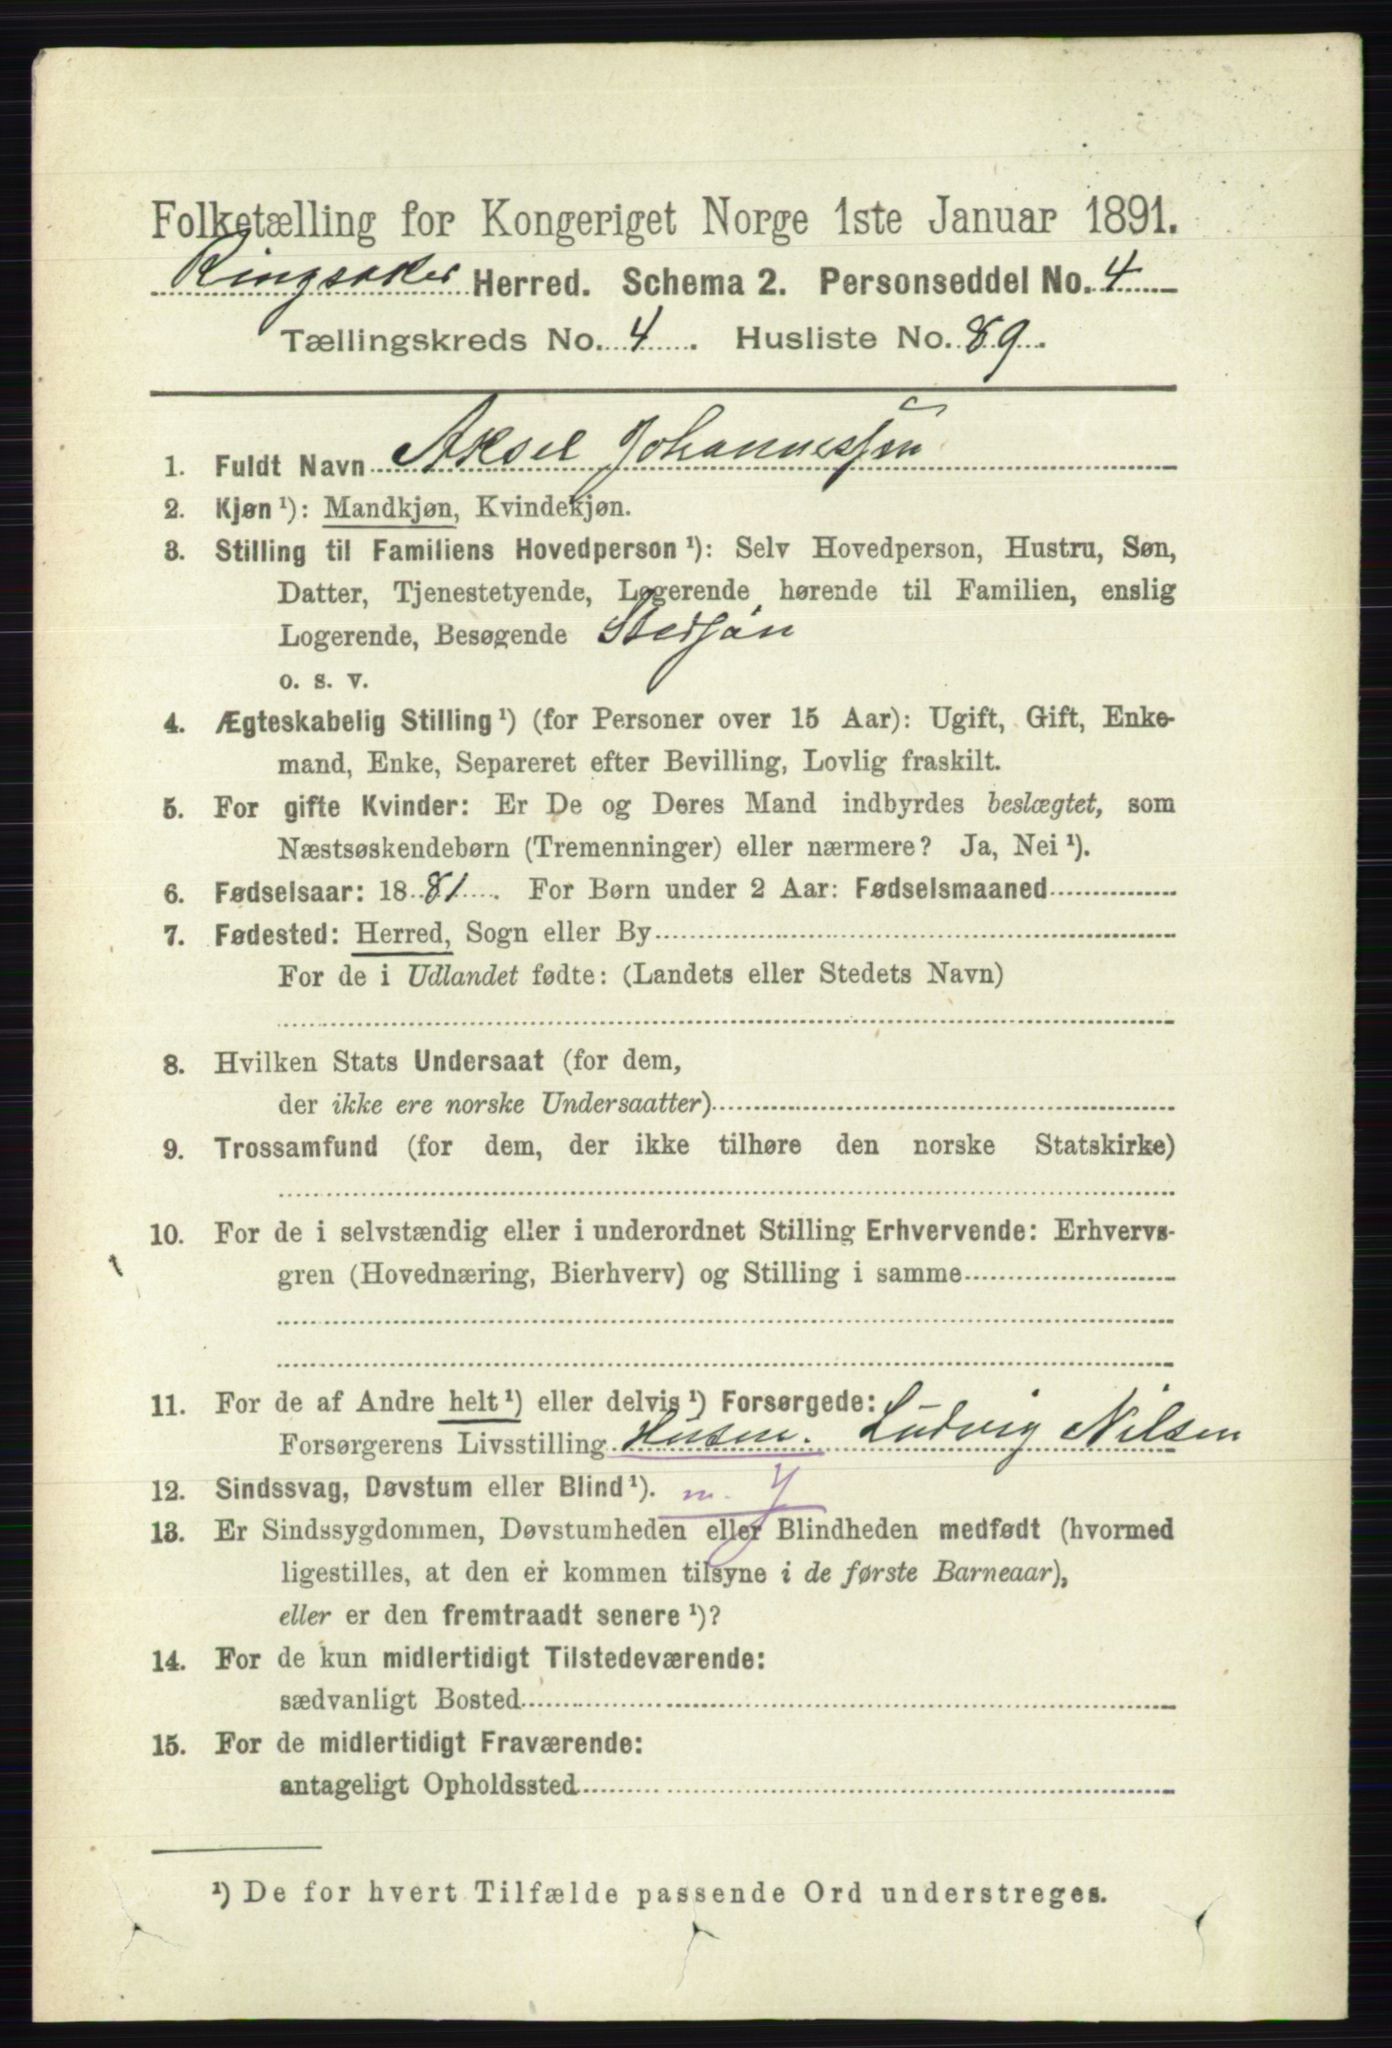 Folketælling for Kongeriget Norge 1ste Januar 1891.
Ringsaker Herred. Schema 2. Personseddel No. 4
Tællingskreds No. 4. Husliste No. 89.
1. Fuldt Navn Aksel Johannessen
2. Kjøn ¹): Mandkjøn, Kvindekjøn.
3. Stilling til Familiens Hovedperson ¹): Selv Hovedperson, Hustru, Søn,
Datter, Tjenestetyende, Logerende hørende til Familien, enslig
Logerende, Besøgende Stedsøn
o. s. v.
4. Ægteskabelig Stilling ¹) (for Personer over 15 Aar): Ugift, Gift, Enke-
mand, Enke, Separeret efter Bevilling, Lovlig fraskilt.
5. For gifte Kvinder: Er De og Deres Mand indbyrdes beslægtet, som
Næstsøskendebørn (Tremenninger) eller nærmere? Ja, Nei ¹).
6. Fødselsaar: 1881. For Børn under 2 Aar: Fødselsmaaned
7. Fødested: Herred, Sogn eller By
For de i Udlandet fødte: (Landets eller Stedets Navn)
8. Hvilken Stats Undersaat (for dem,
der ikke ere norske Undersaatter)
9. Trossamfund (for dem, der ikke tilhøre den norske Statskirke)
10. For de i selvstændig eller i underordnet Stilling Erhvervende: Erhvervs-
gren (Hovednæring, Bierhverv) og Stilling i samme
11. For de af Andre helt ¹) eller delvis ¹) Forsørgede:
Forsørgerens Livsstilling Husm. Ludvig Nilsen
12. Sindssvag, Døvstum eller Blind ¹). m. j
13. Er Sindssygdommen, Døvstumheden eller Blindheden medfødt (hvormed
ligestilles, at den er kommen tilsyne i de første Barneaar),
eller er den fremtraadt senere ¹)?
14. For de kun midlertidigt Tilstedeværende:
sædvanligt Bosted
15. For de midlertidigt Fraværende:
antageligt Opholdssted
¹) De for hvert Tilfælde passende Ord understreges.